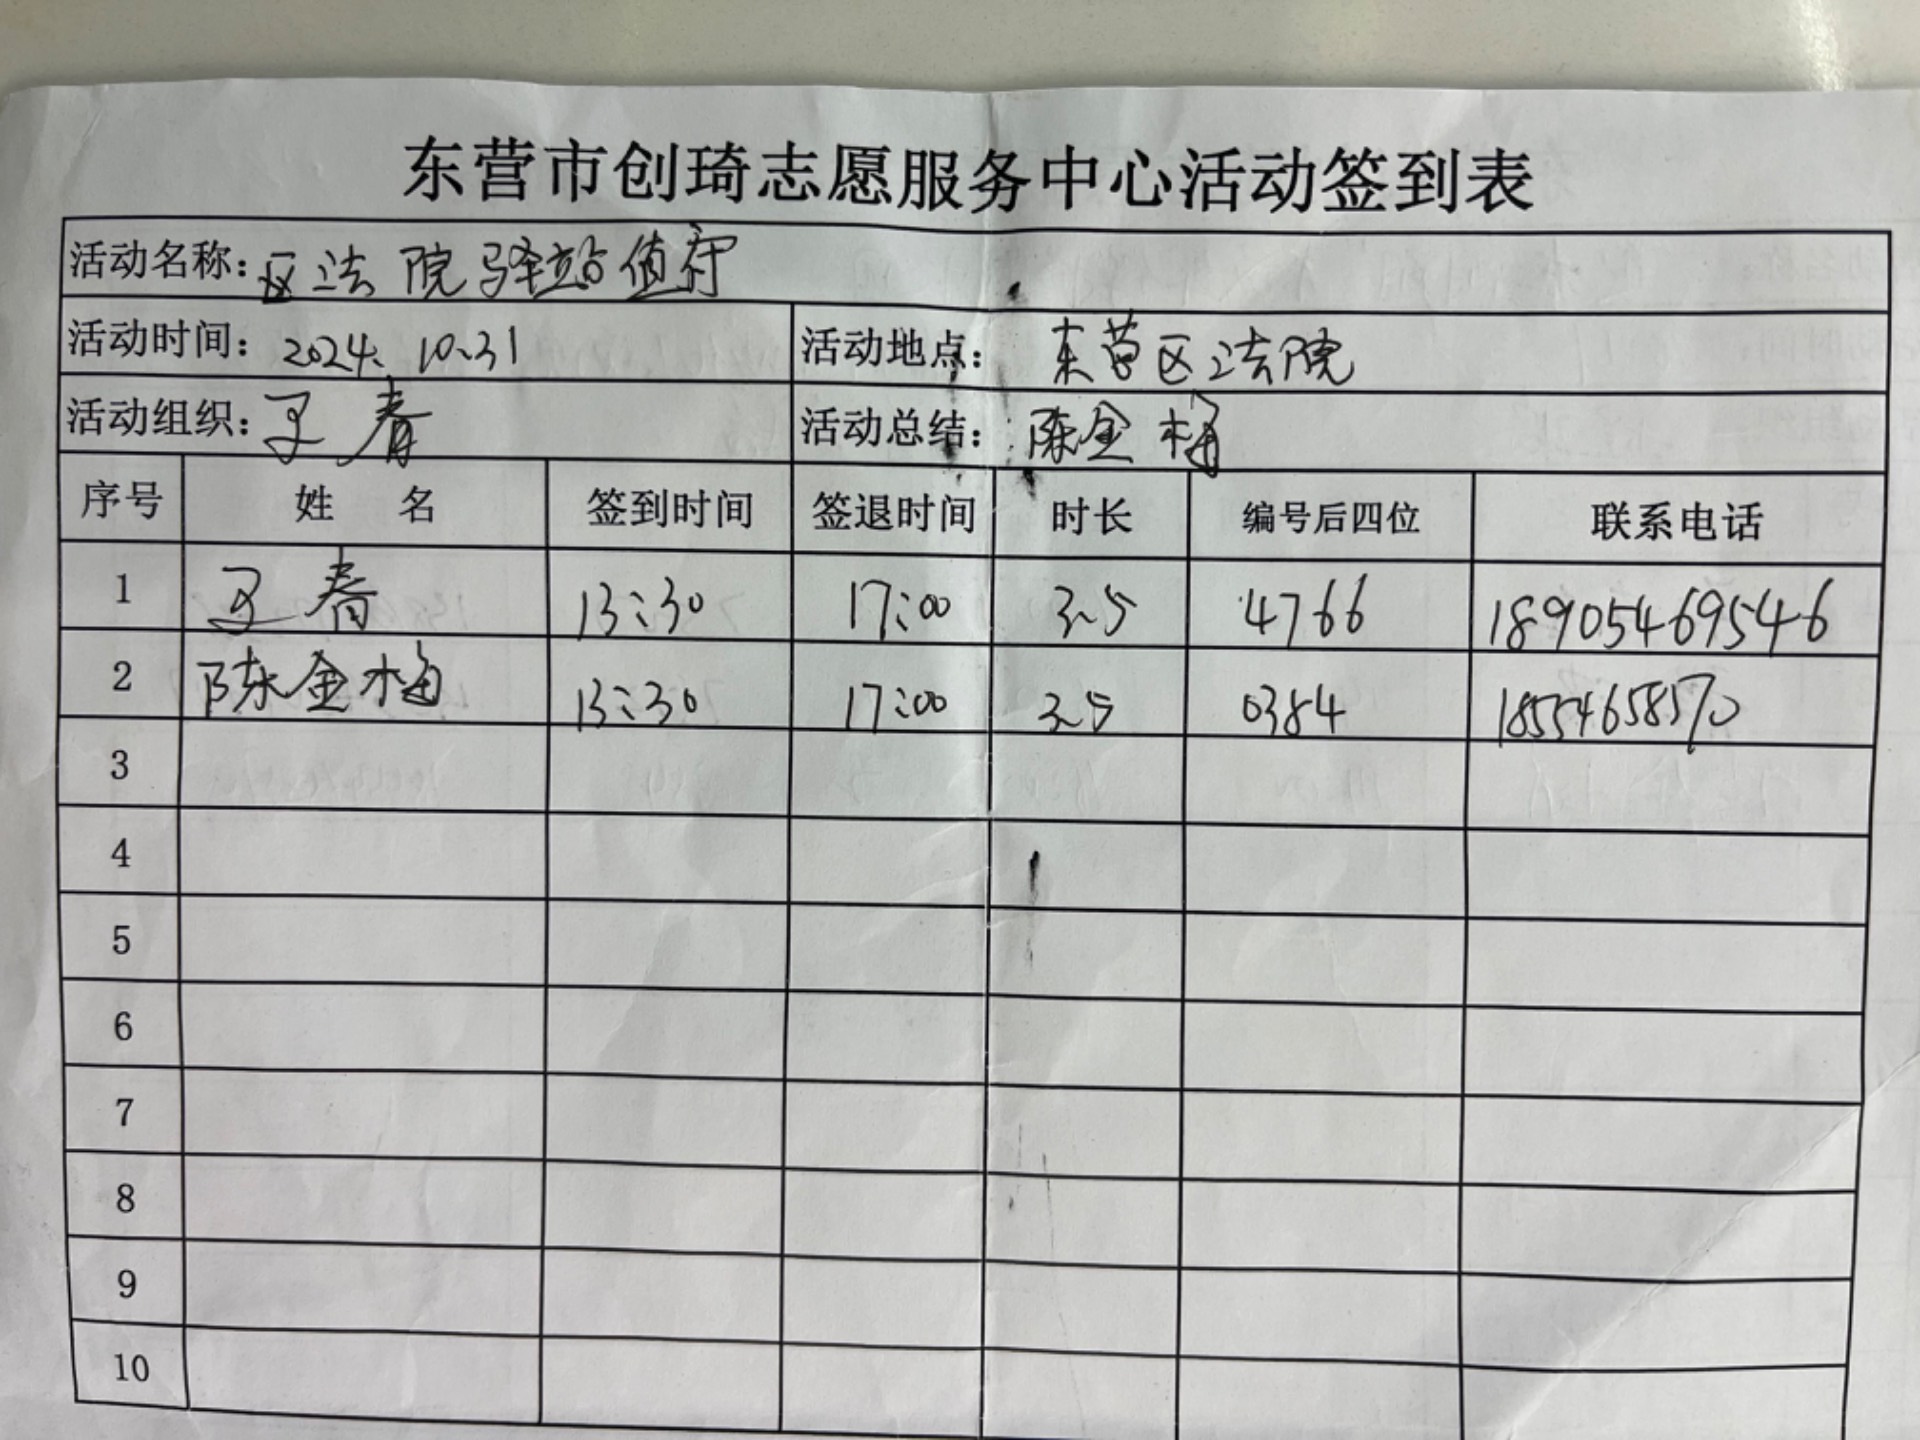 东营市创琦志愿服务中心活动签到表
活动名称：区法院驿站值守
活动时间：2024.10.31 活动地点：东营区法院
活动组织：王春 活动总结：陈金梅
序号 姓名 签到时间 签退时间 时长 编号后四位 联系电话
1 王春 13:30 17:00 3.5 4766 18905469546
2 陈金梅 13:30 17:00 3.5 0384 18554658570
3
4
5
6
7
8
9
10